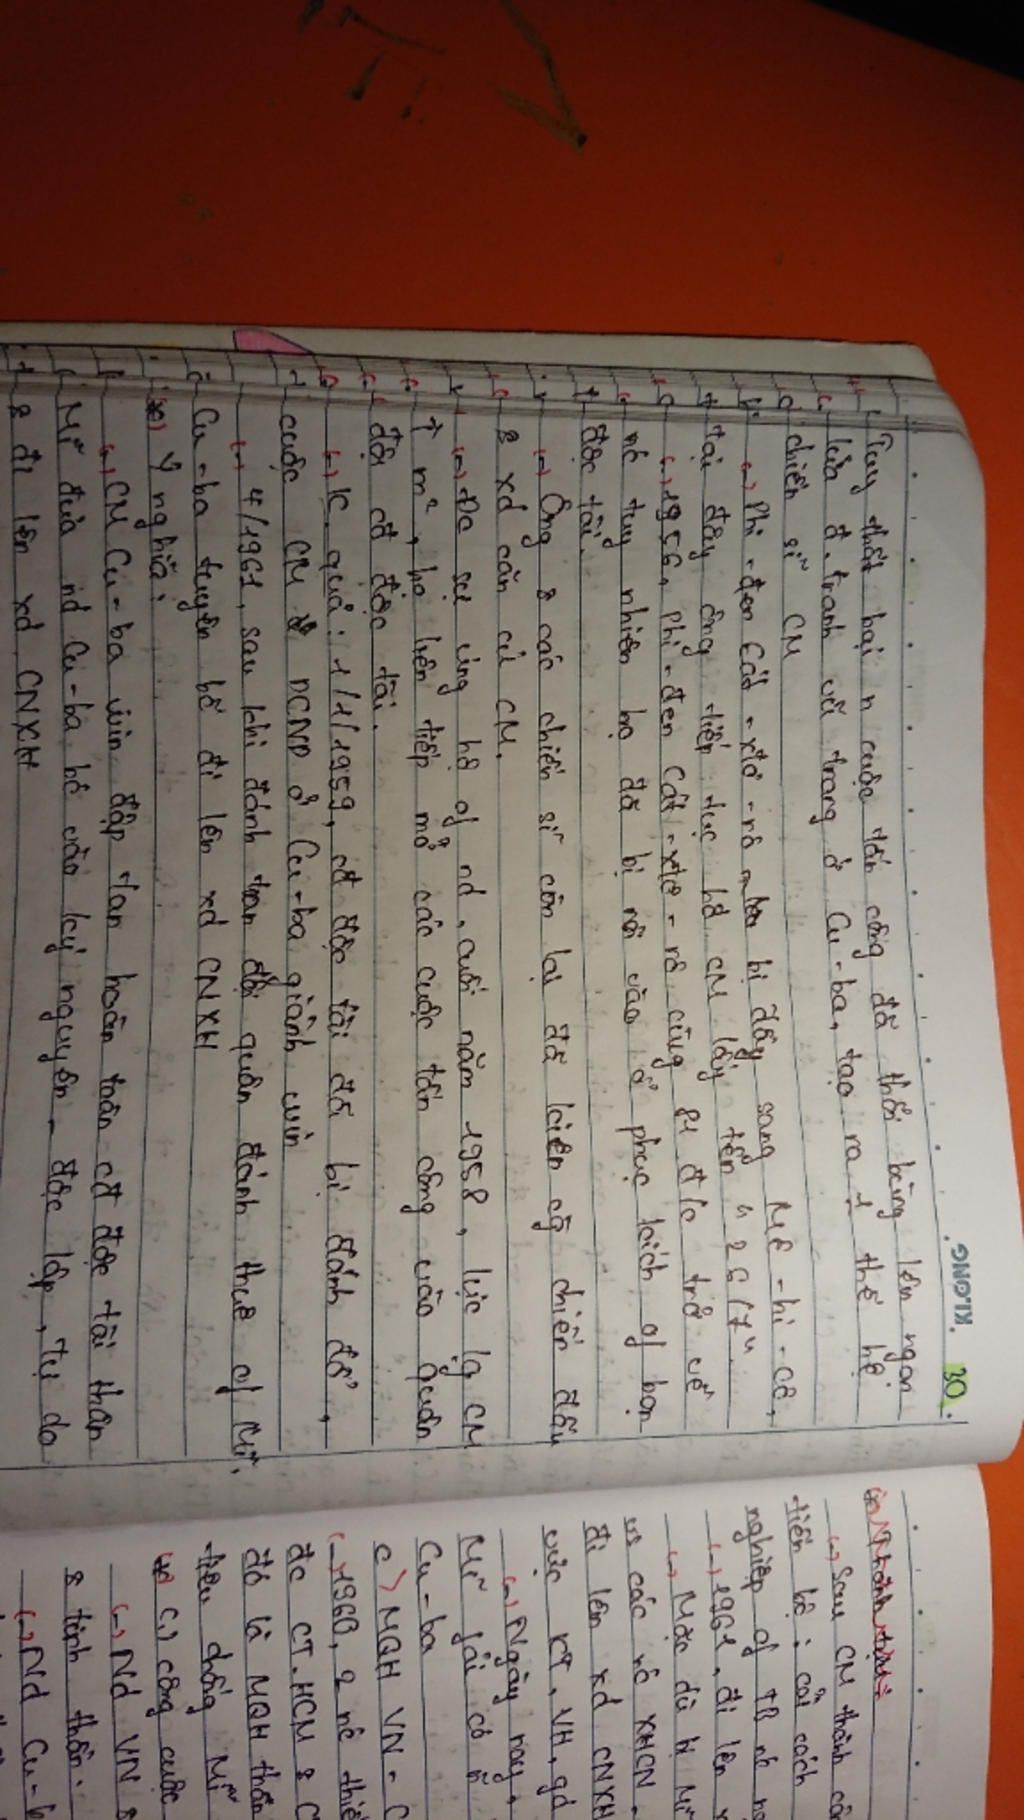 KLONG 30
Tuy thất bại n cuộc tấn công đã thổi bùng lên ngọn
lửa đ.tranh vũ trang ở Cu-ba, tạo ra 1 thế hệ
chiến sĩ CM
(→) Phi-đen Cát-xtơ-rô bị đầy sang Mê-hi-cô,
tại đây ông tiếp tục hđ CM lấy tên "26/7"
(→) 1956, Phi-đen Cát-xtơ-rô cùng 81 đ/c trở về
nc tuy nhiên họ đã bị rơi vào ổ phục kích of bọn
độc tài.
(→) Ông & các chiến sĩ còn lại đã kiên cg chiến đấu
& xd căn cứ CM.
(→) Đc sự ủng hộ of nd, cuối năm 1958, lực lg CM
↑ m², họ liên tiếp mở các cuộc tấn công vào quân
đội cđ độc tài.
(→) K.quả: 1/1/1959, cđ độc tài đã bị đánh đổ,
cuộc CM DCND ở Cu-ba giành win
(→) 4/1961, sau khi đánh tan đội quân đánh thuê of Mĩ,
Cu-ba tuyên bố đi lên xd CNXH
(*) Ý nghĩa:
(→) CM Cu-ba win đập tan hoàn toàn cđ độc tài thân
Mĩ đưa nd Cu-ba bc vào kỷ nguyên - độc lập, tự do
& đi lên xd CNXH
(*) Thành tựu:
(→) Sau CM thành cô
tiến bộ: cải cách
nghiệp of TB nc n
(→) 1961, đi lên x
(→) Mặc dù bị Mĩ
vs các nc XHCN -
đi lên xd CNXH
vực KT, VH, gd
(→) Ngày nay,
Mĩ
Cu-ba
c) MQH VN - C
(→) 1960, 2 nc thiế
đc CT.HCM & C
đó là MQH thân
tiêu chống Mĩ
(*) công cuộc
(→) Nd VN &
& tinh thần.
(→) Nd Cu-b